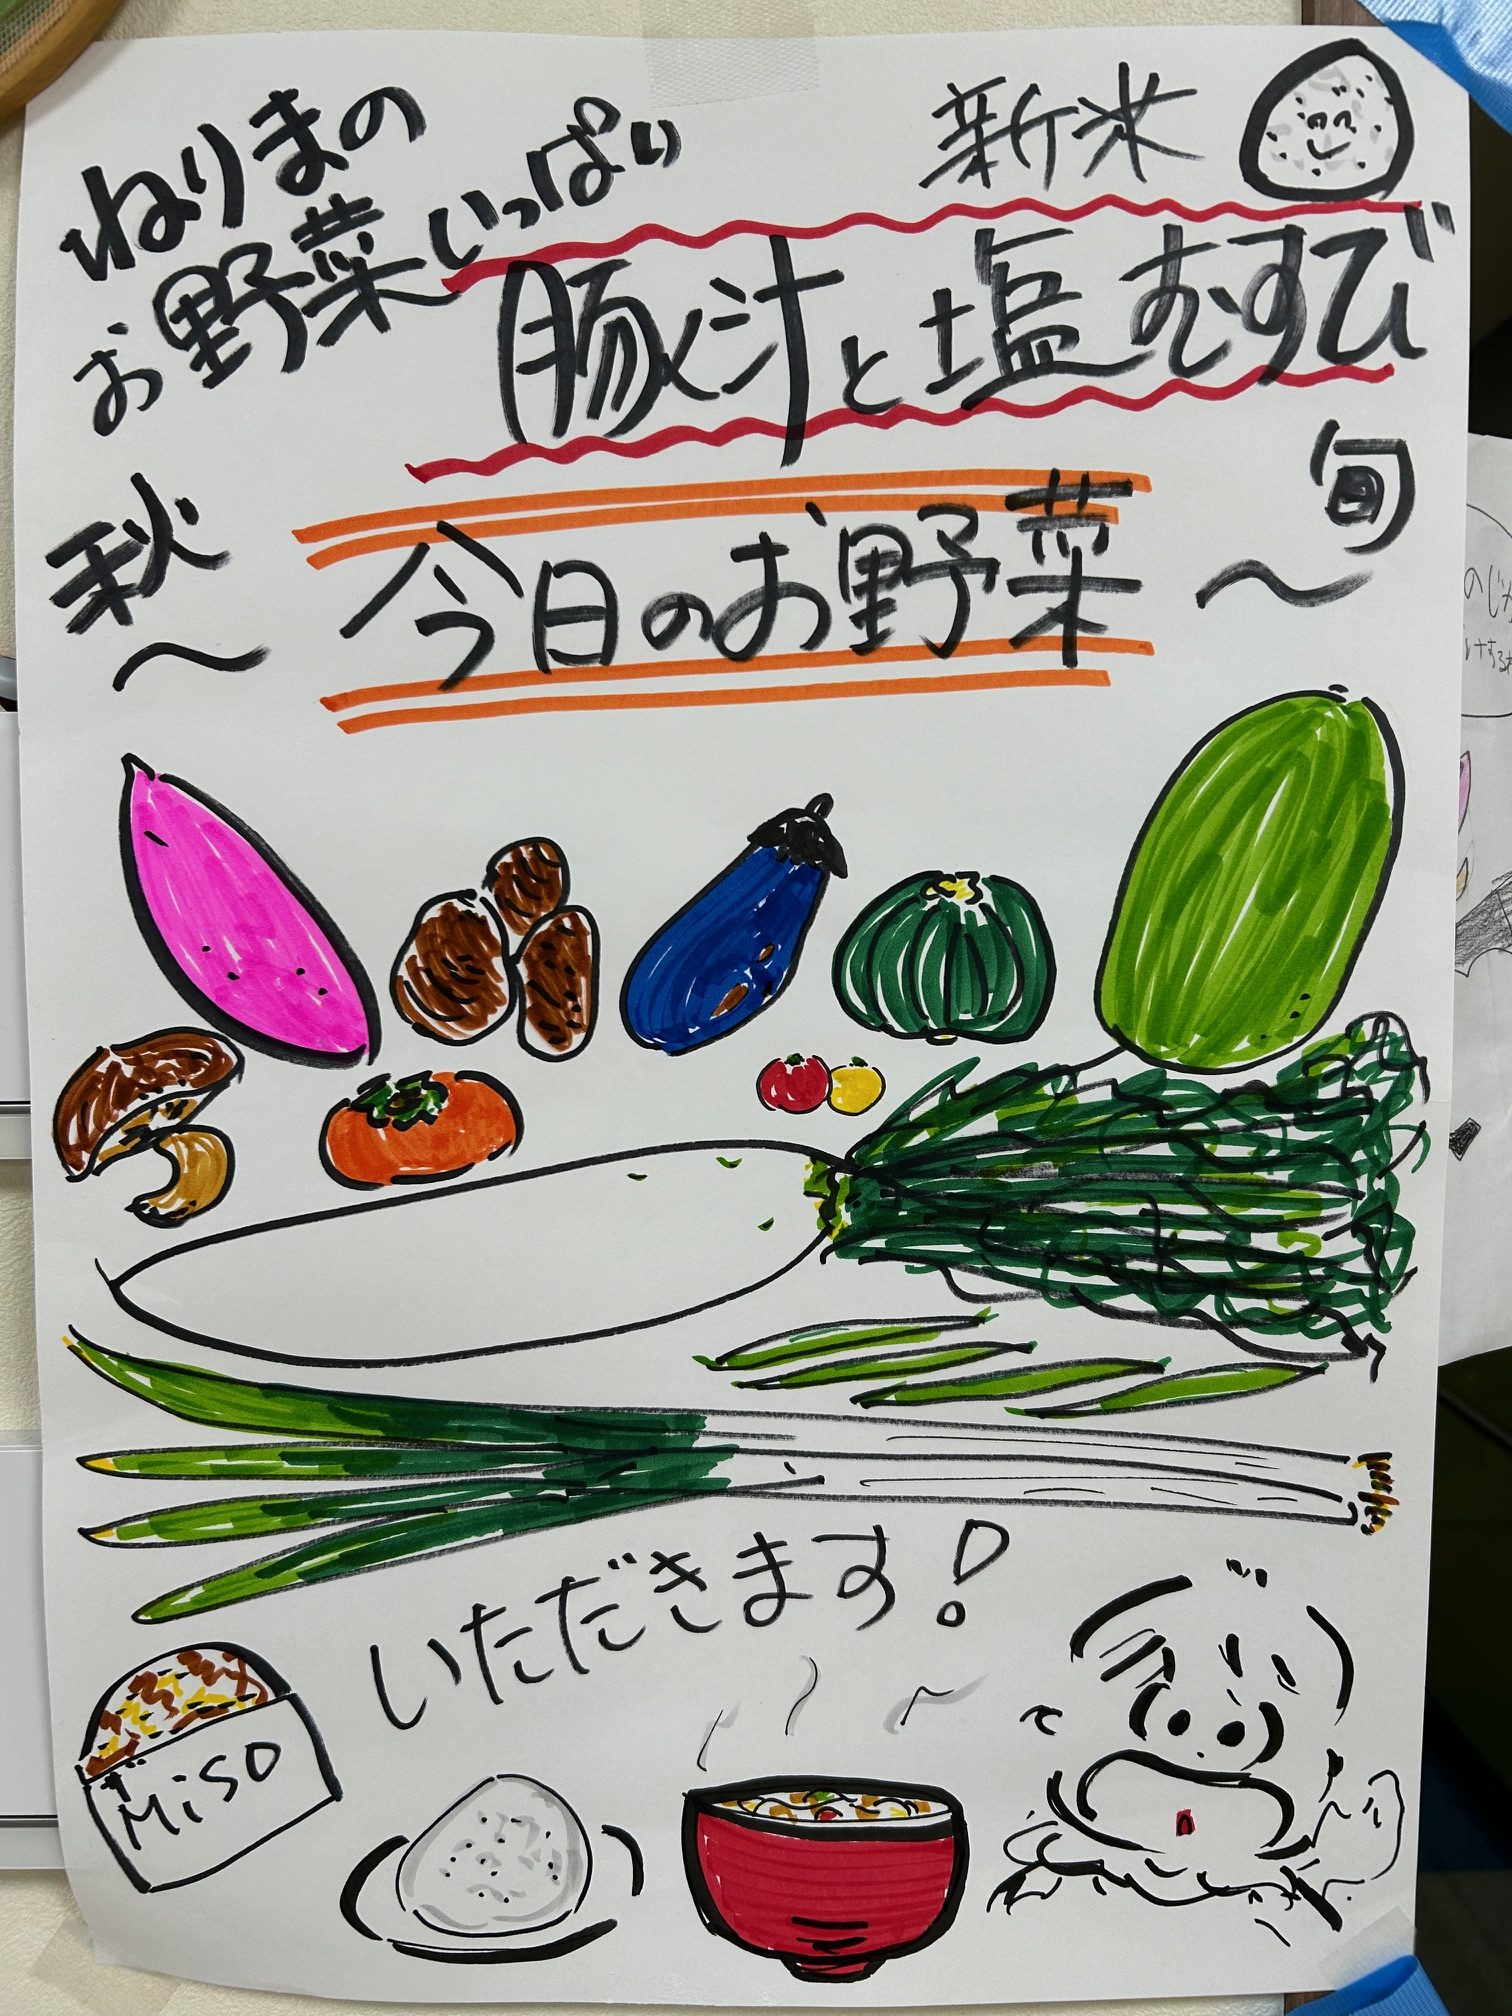 ねりまの
お野菜いっぱい
新米
豚汁と塩むすび
秋〜
今日のお野菜
旬〜
いただきます!
Miso